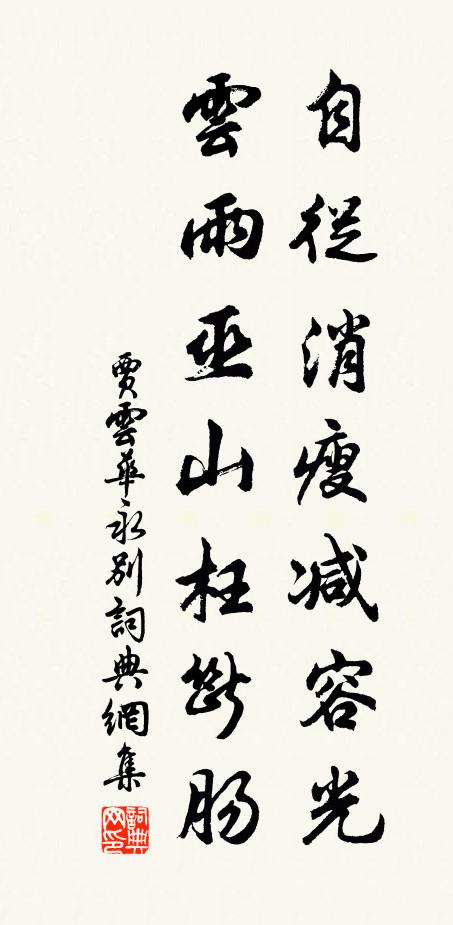 自從消瘦減容光
雲雨巫山枉斷腸
賈雲華永別詞典網集
詞典网印